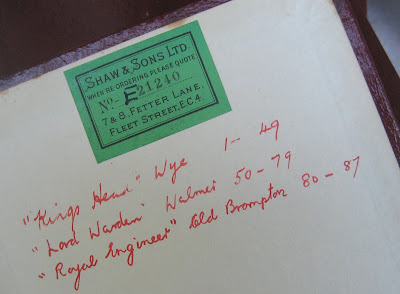 SHAW & SONS LTD.
WHEN RE ORDERING PLEASE QUOTE
No.- E21240
7 & 8, FETTER LANE,
FLEET STREET, E.C.4.
"Kings Head" Wye 1 - 49
"Lord Warden" Walmer 50 - 79
"Royal Engineer" Old Brompton 80 - 87